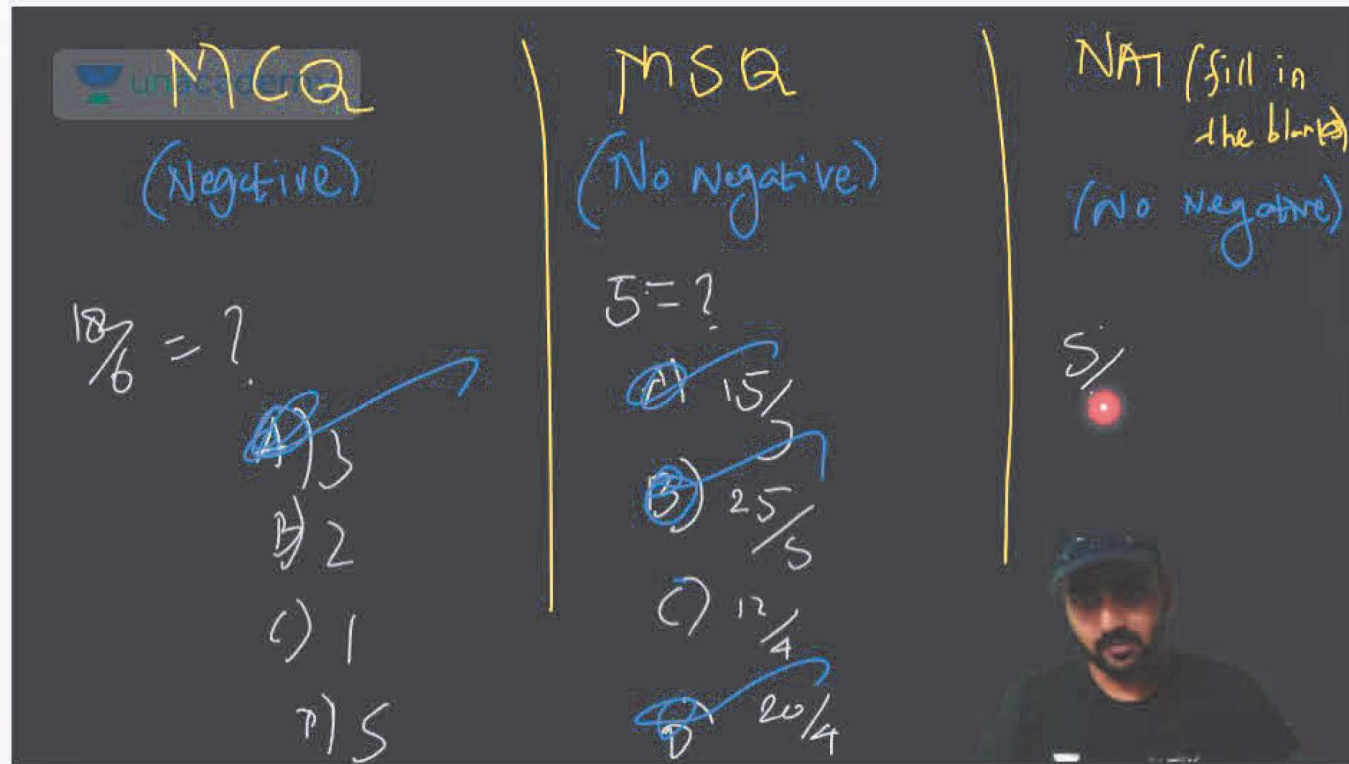 unacademy
MCQ
(Negative)
18/6 = ?
A) 3
B) 2
C) 1
D) 5
MSQ
(No Negative)
5 = ?
A) 15/3
B) 25/5
C) 12/4
D) 20/4
NAT (fill in
the blanks)
(No Negative)
5/